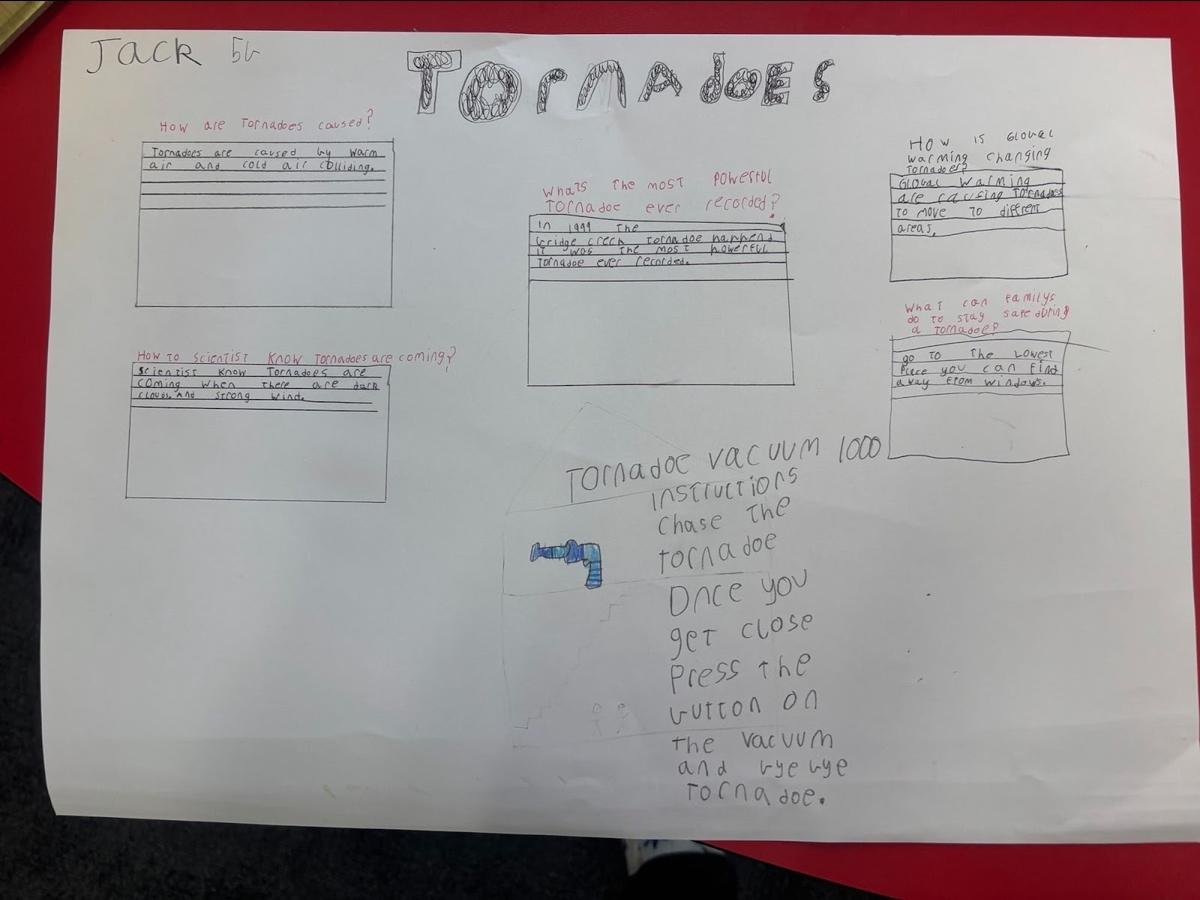 Jack 5G
Tornadoes
How are Tornadoes caused?
Tornadoes are caused by warm
air and cold air colliding.
How to Scientist know Tornadoes are coming?
Scientist know Tornadoes are
coming when there are dark
clouds and strong wind.
Whats the most powerful
Tornadoe ever recorded?
In 1999 the
bridge creek tornadoe happend
it was the most powerful
tornadoe ever recorded.
How is Global
warming changing
tornadoes?
Global warming
are causing tornadoes
to move to different
areas.
What can familys
do to stay safe during
a tornadoe?
go to the lowest
place you can find
away from windows.
Tornadoe vacuum 1000
instructions
Chase the
tornadoe
Once you
get close
Press the
button on
the vacuum
and bye bye
tornadoe.